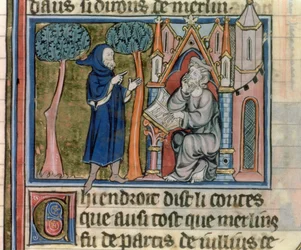 dans si dirons de merlin
Chi endroit dist li contes
que ausi tost que merlins
fu de partis de iulius ce